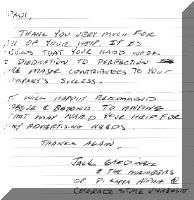 Paul,
Thank you very much for
all of your help. It is
that your hard work
& dedication to perfection
major contributes to your
company's success.
I will happily recommend
above & beyond to anyone
that may need your help for
advertising needs.
Thanks again,
Jack Gardner
& the members
of Pi Kappa Alpha @
State University